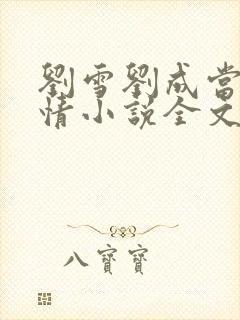 劉雪劉成當
情小說全文
八寶寶